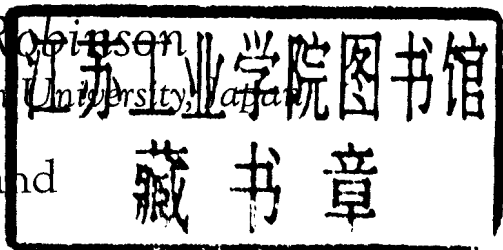 Robinson
University, Japan
江苏工业学院图书馆
and
藏书章